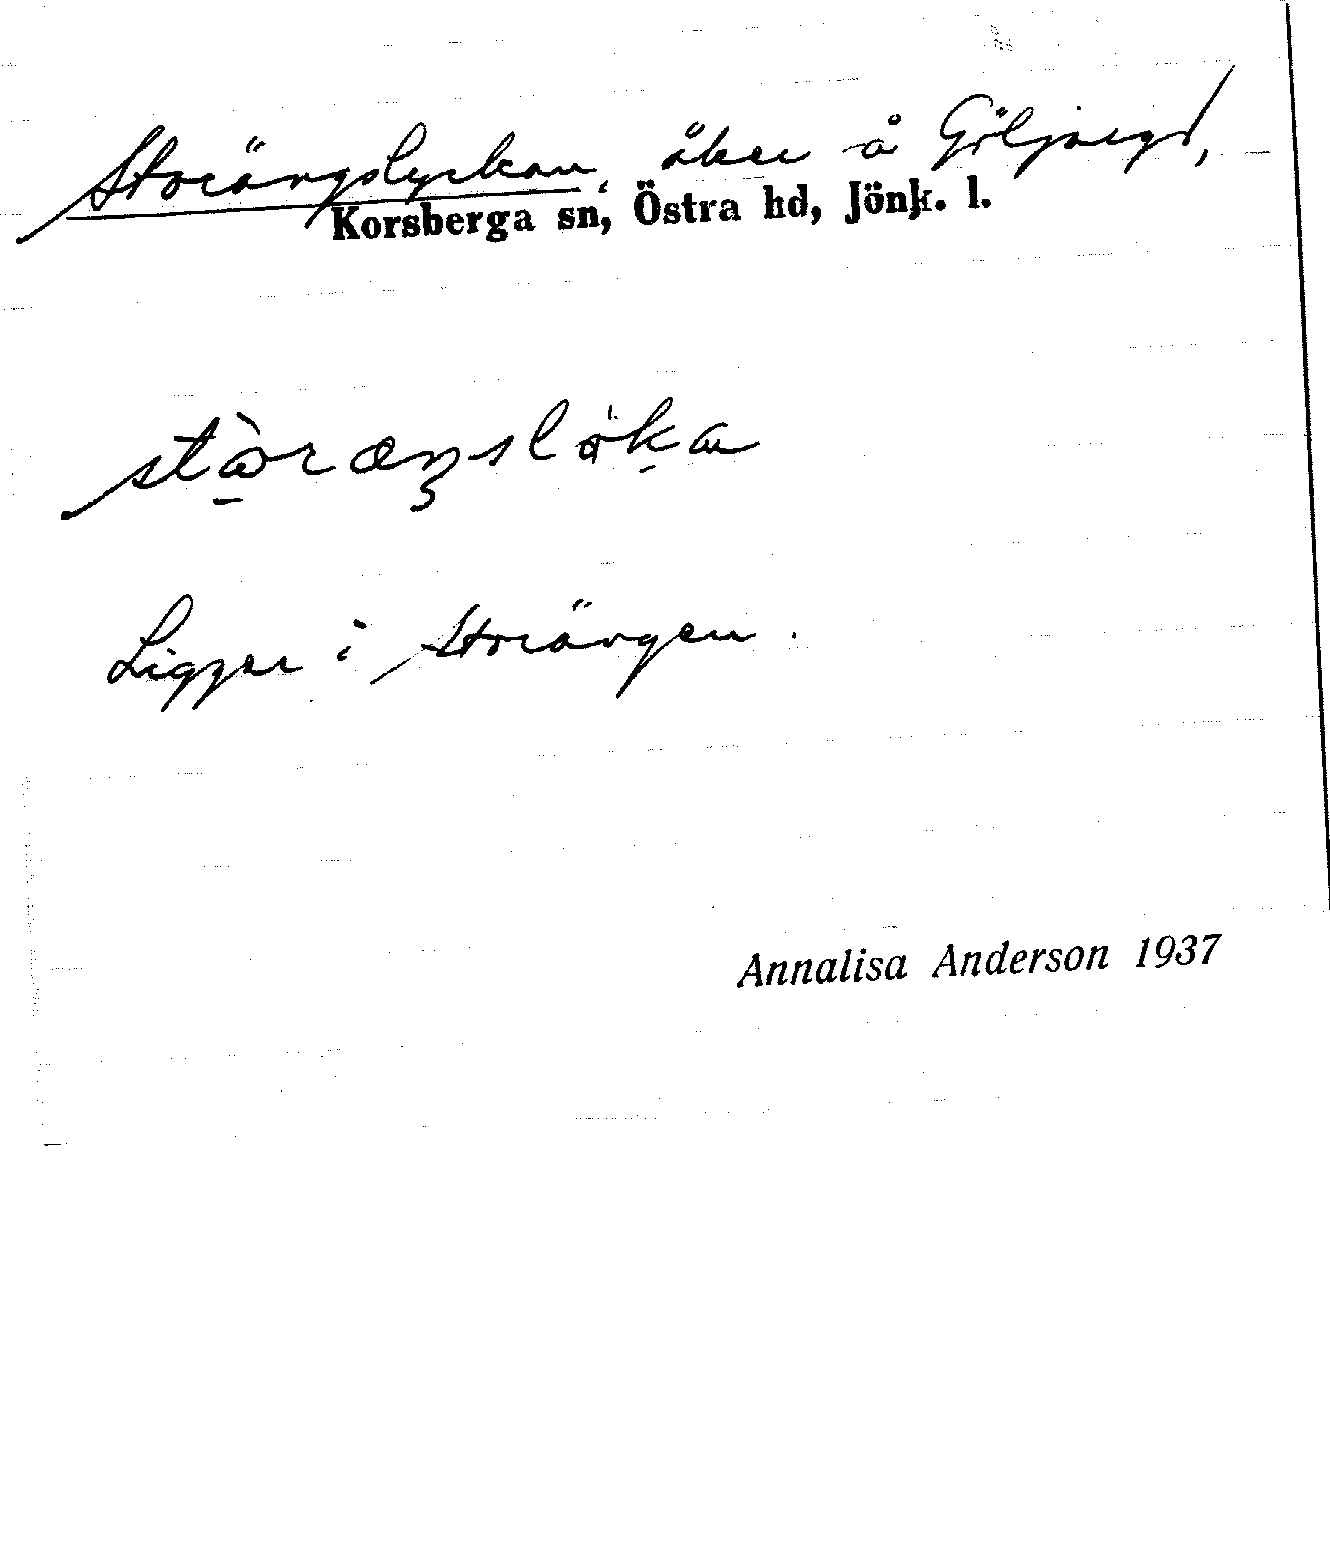 Storängslyckan, åker å Göljaryd,
Korsberga sn, Östra hd, Jönk. l.
Ligger i Storängen.
Annalisa Anderson 1937